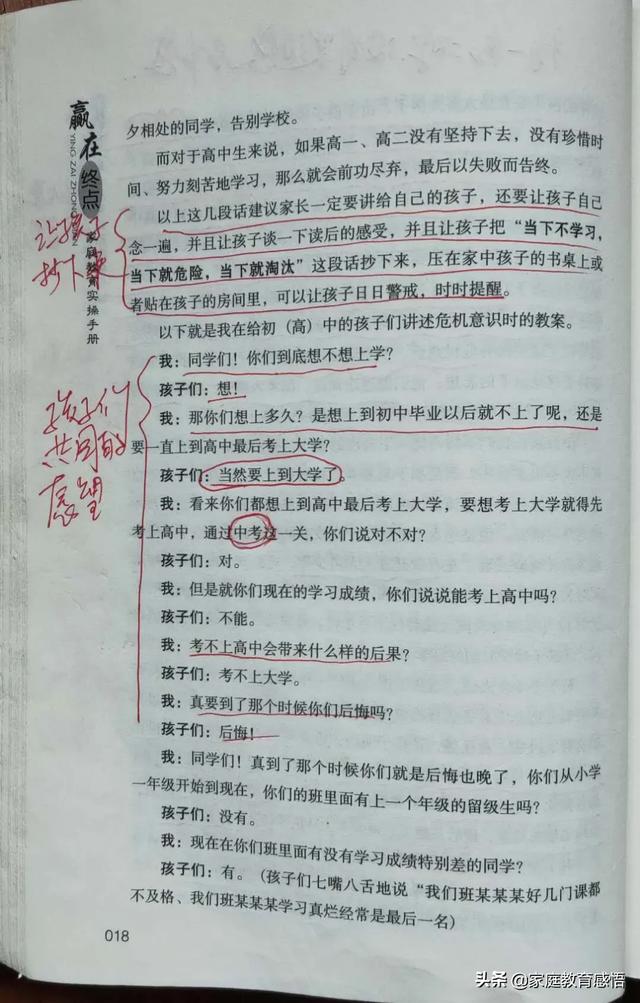 赢在终点
YING ZAI ZHONG
家庭教育实操手册
让孩子
抄下来
孩子们
共同的
愿望
夕相处的同学，告别学校。
而对于高中生来说，如果高一、高二没有坚持下去，没有珍惜时
间、努力刻苦地学习，那么就会前功尽弃，最后以失败而告终。
以上这几段话建议家长一定要讲给自己的孩子，还要让孩子自己
念一遍，并且让孩子谈一下读后的感受，并且让孩子把“当下不学习，
当下就危险，当下就淘汰”这段话抄下来，压在家中孩子的书桌上或
者贴在孩子的房间里，可以让孩子日日警戒，时时提醒。
以下就是我在给初（高）中的孩子们讲述危机意识时的教案。
我：同学们！你们到底想不想上学？
孩子们：想！
我：那你们想上多久？是想上到初中毕业以后就不上了呢，还是
要一直上到高中最后考上大学？
孩子们：当然要上到大学了。
我：看来你们都想上到高中最后考上大学，要想考上大学就得先
考上高中，通过中考这一关，你们说对不对？
孩子们：对。
我：但是就你们现在的学习成绩，你们说说能考上高中吗？
孩子们：不能。
我：考不上高中会带来什么样的后果？
孩子们：考不上大学。
我：真要到了那个时候你们后悔吗？
孩子们：后悔！
我：同学们！真到了那个时候你们就是后悔也晚了，你们从小学
一年级开始到现在，你们的班里面有上一个年级的留级生吗？
孩子们：没有。
我：现在在你们班里面有没有学习成绩特别差的同学？
孩子们：有。（孩子们七嘴八舌地说“我们班某某某好几门课都
不及格、我们班某某某学习真烂经常是最后一名）
018
头条 @家庭教育感悟